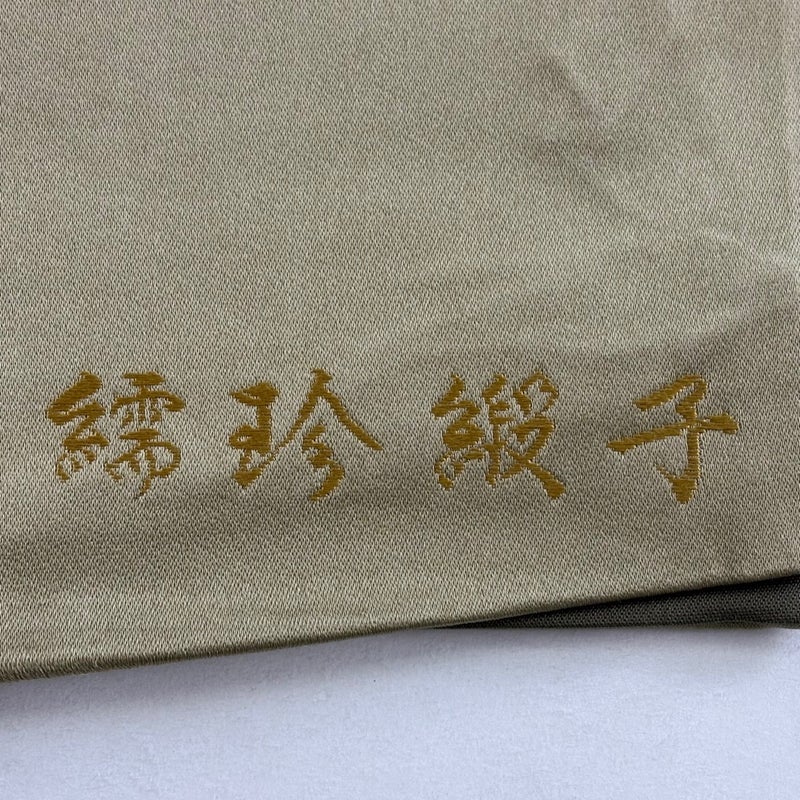 繻珍緞子